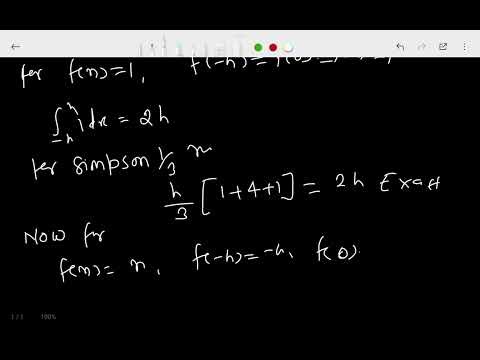 for f(n)=1, f(-h)=f(0)
∫_{-h}^{h} 1 dx = 2h
for simpson 1/3
h/3 [1+4+1] = 2h Exact
Now for
f(n)= n, f(-h)=-h, f(0)
1 / 1 100%